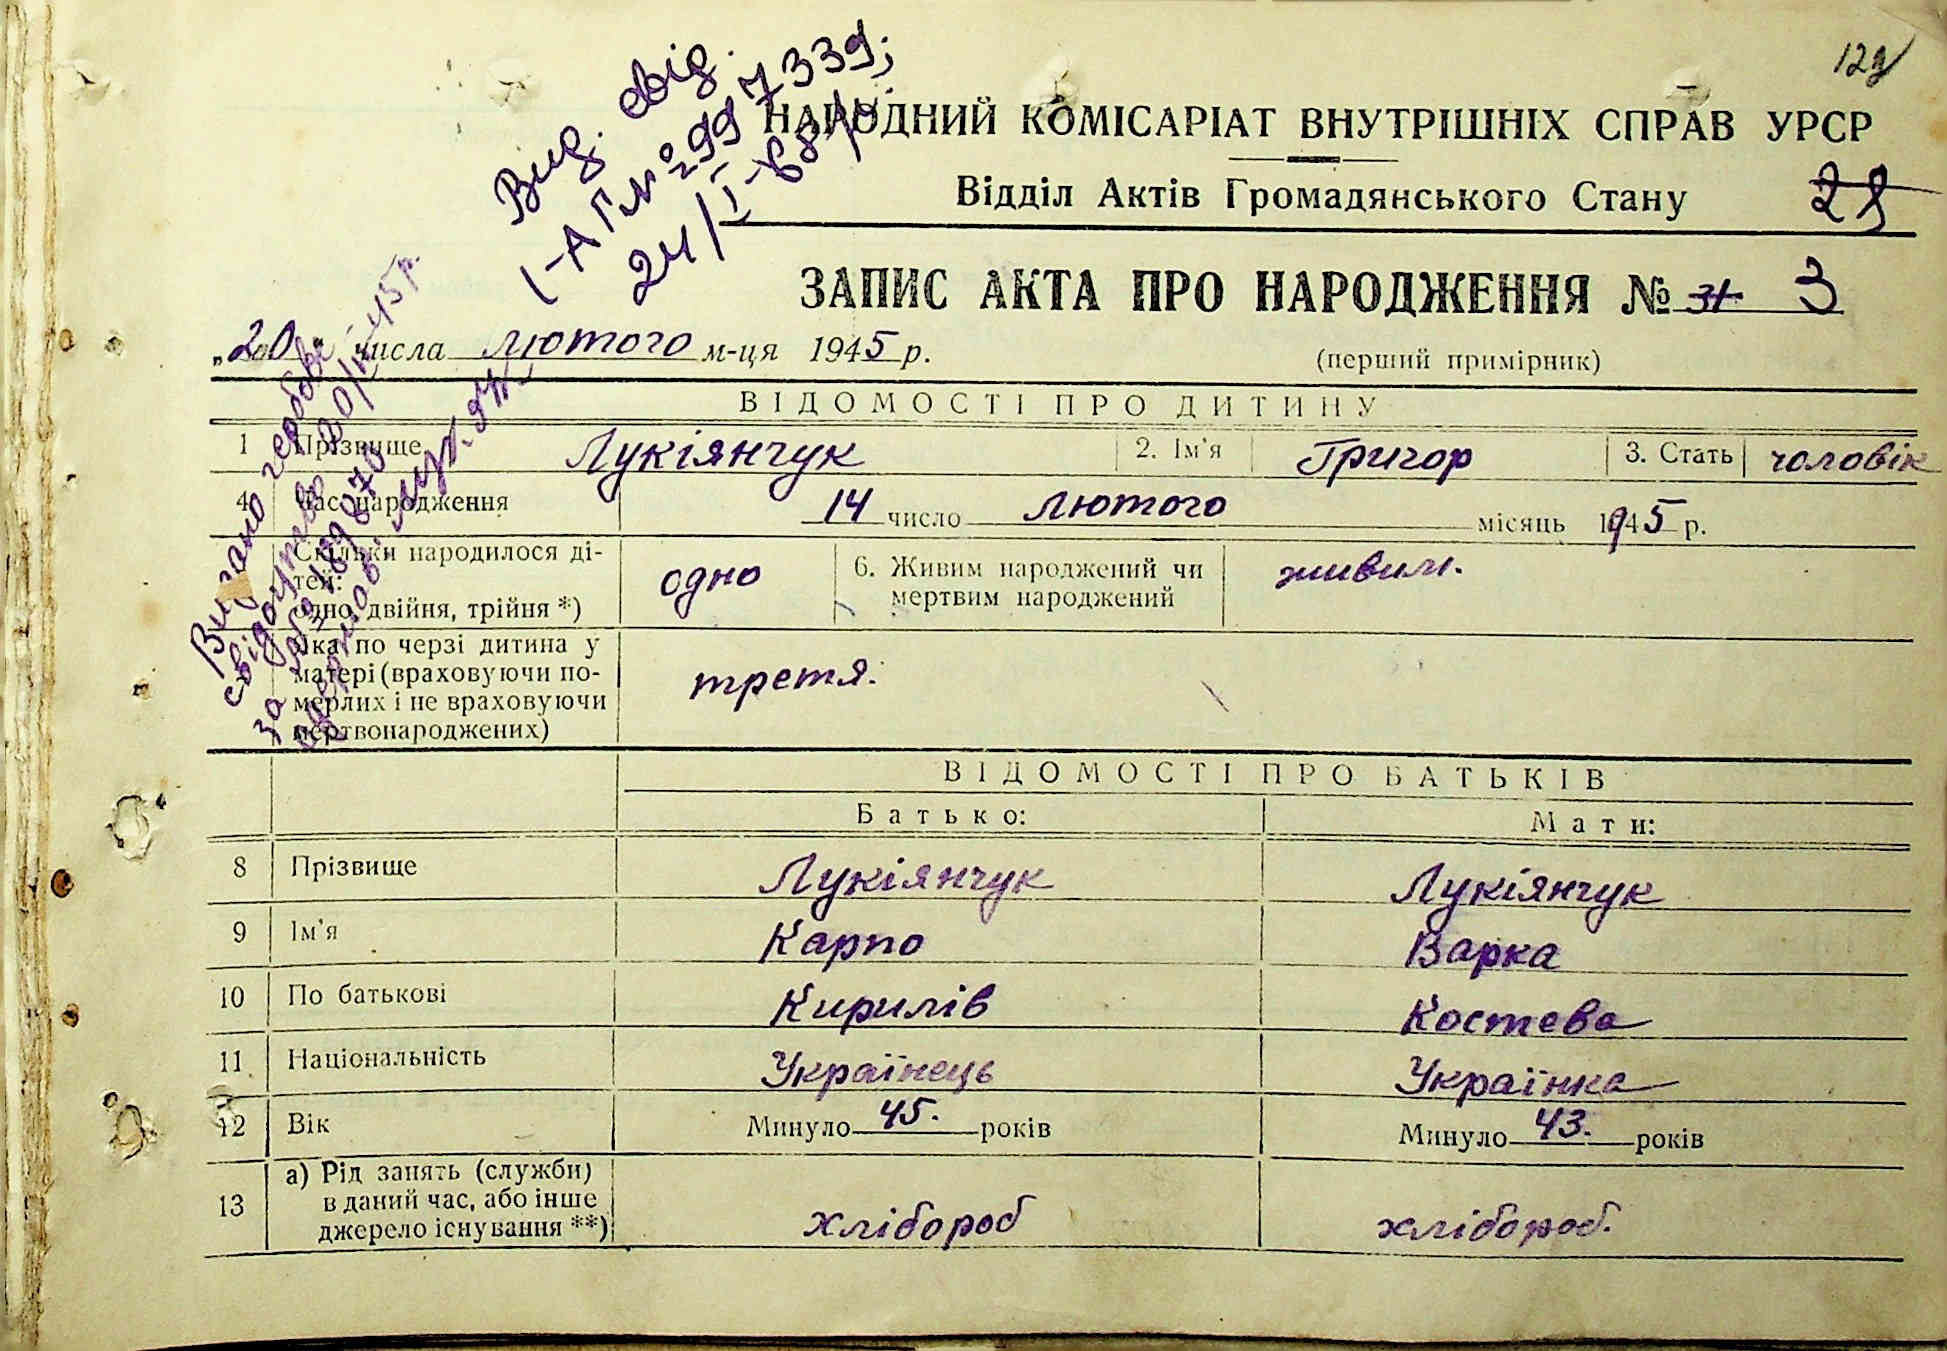 129
Вид. свід.
I-АП № 2997339;
24/I-68 р.
НАРОДНИЙ КОМІСАРІАТ ВНУТРІШНІХ СПРАВ УРСР
Відділ Актів Громадянського Стану 28
ЗАПИС АКТА ПРО НАРОДЖЕННЯ № 31 3
„20" числа лютого м-ця 1945 р.
(перший примірник)
Видано гербове
свідоцтво 20/II-45 р.
ВІДОМОСТІ ПРО ДИТИНУ
1 Прізвище Лукіянчук 2. Ім'я Григор 3. Стать чоловік
4 Час народження 14 число лютого місяць 1945 р.
Скільки народилося ді-
тей:
одно, двійня, трійня *) одно 6. Живим народжений чи
мертвим народжений живим.
Яка по черзі дитина у
матері (враховуючи по-
мерлих і не враховуючи
мертвонароджених) третя.
ВІДОМОСТІ ПРО БАТЬКІВ
Батько: Мати:
8 Прізвище Лукіянчук Лукіянчук
9 Ім'я Карпо Варка
10 По батькові Кирилів Костева
11 Національність Українець Українка
12 Вік Минуло 45. років Минуло 43. років
13 а) Рід занять (служби)
в даний час, або інше
джерело існування **) хлібороб хлібороб.